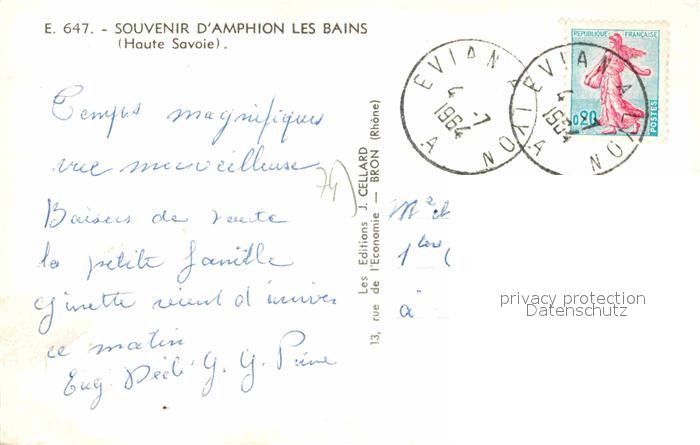 E. 647. - SOUVENIR D'AMPHION LES BAINS
(Haute Savoie).
Temps magnifiques
vue merveilleuse
Baisers de toute
la petite famille
Ginette vient d'arriver
ce matin
Eug. Dédé G. G. 
74
Les Editions J. CELLARD
13, rue de l'Economie — BRON (Rhône)
EVIAN A LYON A
4 -7
1964
EVIAN A LYON A
4 -7
1964
REPUBLIQUE FRANÇAISE
0,20
POSTES
à
privacy protection
Datenschutz